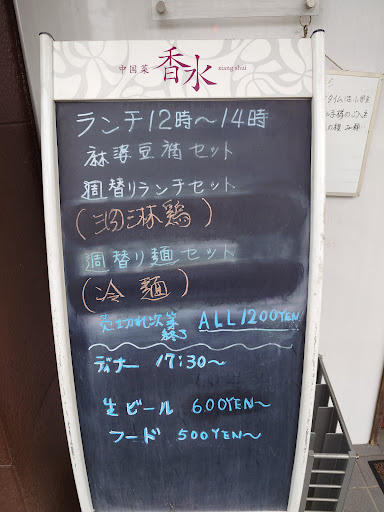 中国菜 香水 xiang shui
ランチ12時〜14時
麻婆豆腐セット
週替りランチセット
(油淋鶏)
週替り麺セット
(冷麺)
売切れ次第終了 ALL1200YEN
ディナー 17:30〜
生ビール 600YEN〜
フード 500YEN〜